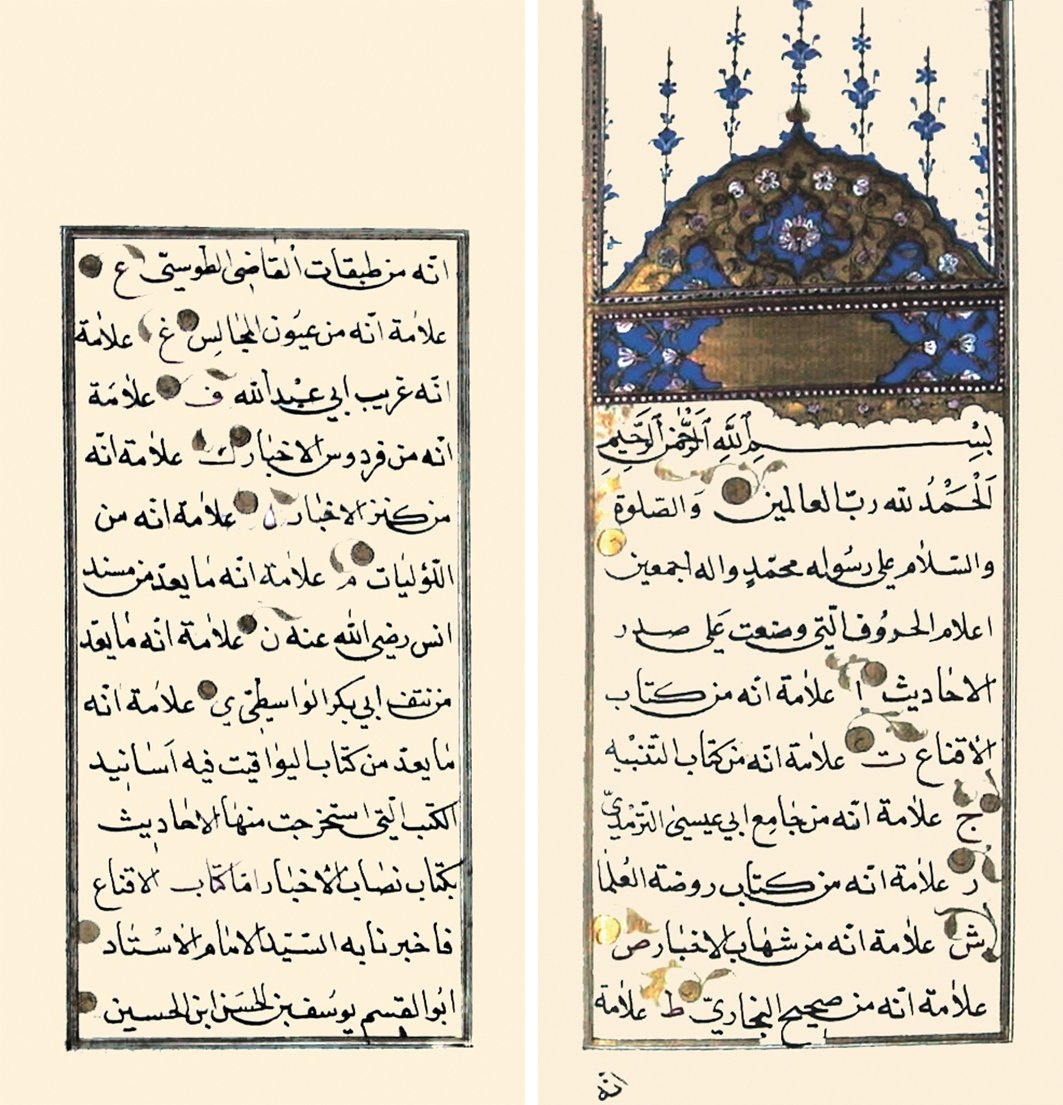 بِسْمِ اللَّهِ الرَّحْمٰنِ الرَّحِيمِ
اَلْحَمْدُ لله ربّ العالمين وَالصّلوة
والسّلام على رسُوله محمّدٍ واله اجمعين
اعلام الحروُف الّتى وضعت عَلى صدر
الاحاديث ا علامة انّه من كتاب
الاقناع ت علامة انّه من كتاب التّنبيه
ج علامة انّه من جامِع ابي عيسىٰ الترّمذيّ
ر علامة انّه من كتاب روضة العُلما
ش علامة انّه من شهاب الاخبار ص
علامة انّه من صحيح البخاريّ ط علامة
انّه
انّه من طبقات القاضى الطوسىّ ع
علامة انّه من عيُون المجالس غ علامة
انّه غريب ابي عبْد الله ف علامَة
انّه من فردوس الاخبار ك علامة انّه
من كنز الاخبار ل علامة انّه من
اللّؤليات م علامة انّه ما يعدّ من مسند
انس رضى الله عنه ن علامة انّه ما يعّد
من نتف ابي بكر الواسطىّ ي علامة انّه
ما يعدّ من كتاب اليواقيت فيه اَسانيد
الكتب الّتى استخرجت منها الاحاديث
بكتاب نصاب الاخبار امّا كتاب الاقناع
فاخبرنا به السّيّد الامام الاسْتاد
ابُو القسم يوسُف بن الحسَن ابن الحسين